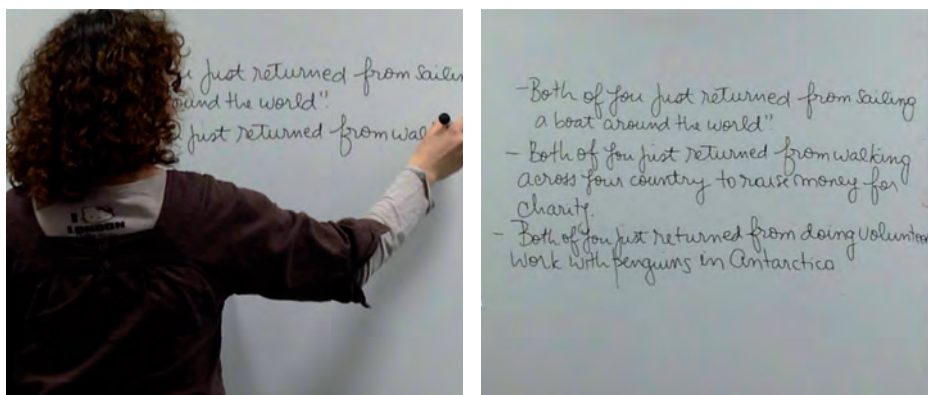 just returned from sailin
ound the world".
just returned from wal
I
LONDON
-Both of you just returned from sailing
a boat around the world"
- Both of you just returned from walking
across your country to raise money for
charity.
- Both of you just returned from doing volunteer
work with penguins in Antarctica